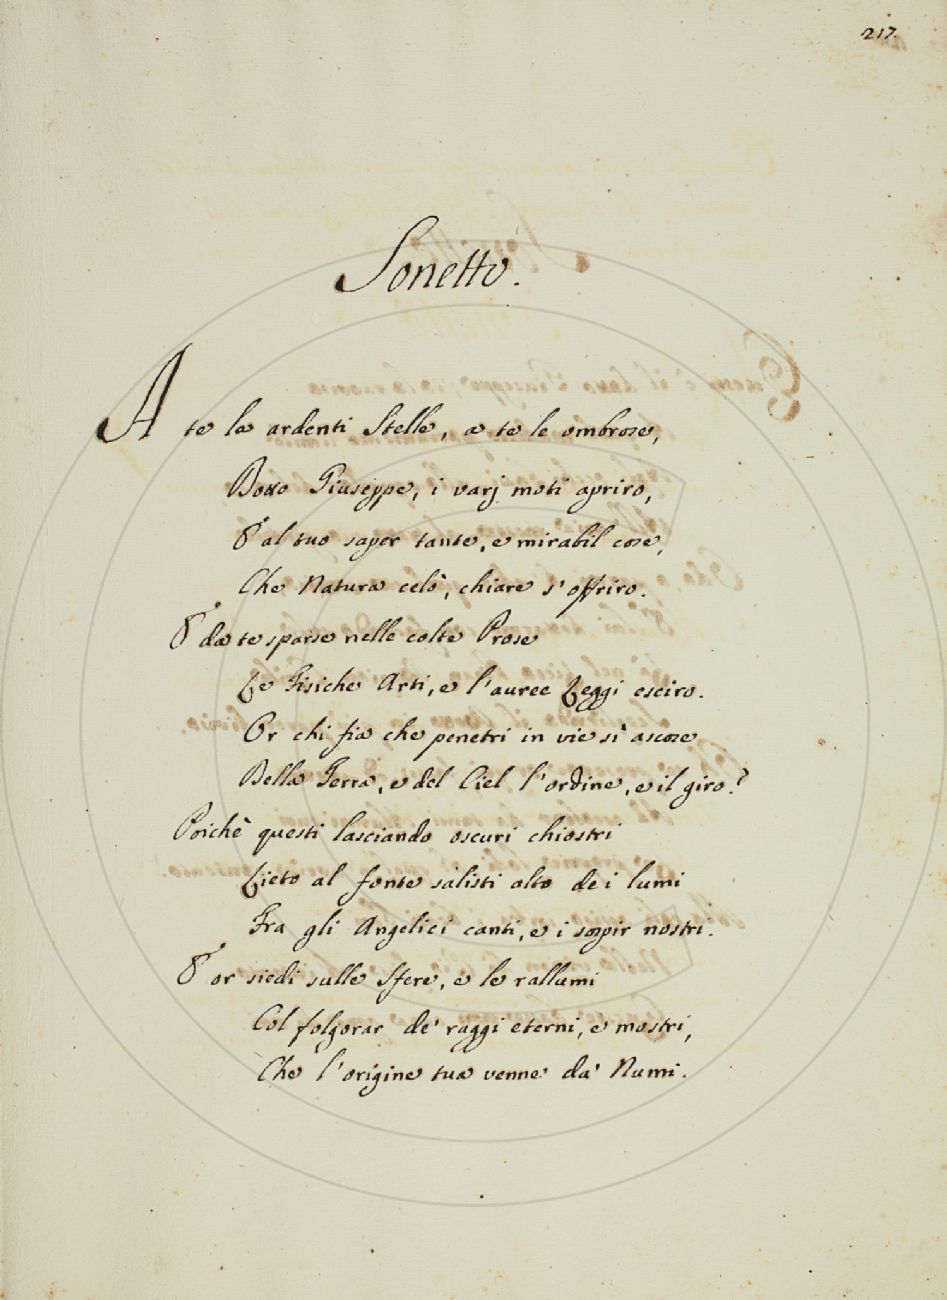 217.
Sonetto.
A te le ardenti Stelle, a te le ombrose,
Bono Giuseppe, i varj moti apriro,
E al tuo saper tante, e mirabil cose,
Che Natura celò, chiare s'offriro.
E da te sparse nelle colte Prose
Le Fisiche Arti, e l'auree Leggi esciro.
Or chi fia che penetri in vie sì ascose
Della Terra, e del Ciel l'ordine, e il giro?
Poichè questi lasciando oscuri chiostri
Lieto al fonte salisti alto dei lumi
Fra gli Angelici canti, e i sospir nostri.
E or siedi sulle Sfere, e le rallumi
Col folgorar de' raggi eterni, e mostri,
Che l'origine tua venne da' Numi.